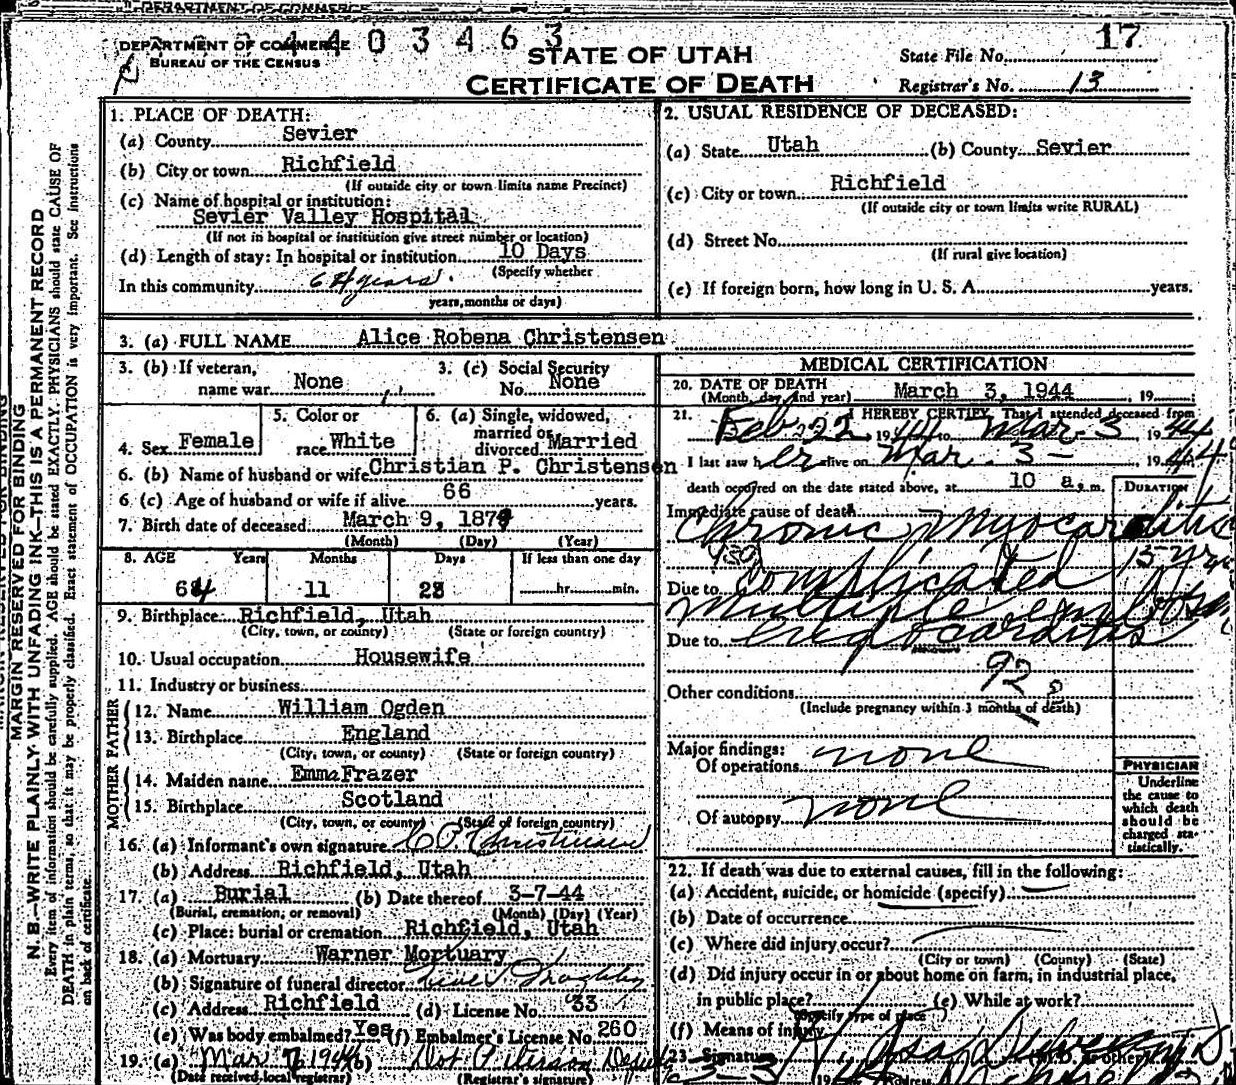 DEPARTMENT OF COMMERCE
DEPARTMENT OF COMMERCE
BUREAU OF THE CENSUS
4403463
STATE OF UTAH
CERTIFICATE OF DEATH
17
State File No.
Registrar's No. 13
MARGIN RESERVED FOR BINDING
N. B.—WRITE PLAINLY WITH UNFADING INK—THIS IS A PERMANENT RECORD
Every item of information should be carefully supplied. AGE should be stated EXACTLY. PHYSICIANS should state CAUSE OF
DEATH in plain terms, so that it may be properly classified. Exact statement of OCCUPATION is very important. See instructions
on back of certificate.
1. PLACE OF DEATH:
(a) County Sevier
(b) City or town Richfield
(If outside city or town limits name Precinct)
(c) Name of hospital or institution:
Sevier Valley Hospital
(If not in hospital or institution give street number or location)
(d) Length of stay: In hospital or institution 10 Days
(Specify whether
In this community 64 years.
years, months or days)
2. USUAL RESIDENCE OF DECEASED:
(a) State Utah (b) County Sevier
(c) City or town Richfield
(If outside city or town limits write RURAL)
(d) Street No.
(If rural give location)
(e) If foreign born, how long in U. S. A. years.
3. (a) FULL NAME Alice Robena Christensen
3. (b) If veteran,
name war None
3. (c) Social Security
No. None
4. Sex Female
5. Color or
race White
6. (a) Single, widowed,
married or
divorced Married
6. (b) Name of husband or wife Christian P. Christensen
6 (c) Age of husband or wife if alive 66 years.
7. Birth date of deceased March 9, 1879
(Month) (Day) (Year)
8. AGE Years Months Days If less than one day
64 11 23 hr. min.
9. Birthplace Richfield, Utah
(City, town, or county) (State or foreign country)
10. Usual occupation Housewife
11. Industry or business
FATHER
12. Name William Ogden
13. Birthplace England
(City, town, or county) (State or foreign country)
MOTHER
14. Maiden name Emma Frazer
15. Birthplace Scotland
(City, town, or county) (State of foreign country)
16. (a) Informant's own signature C P. Christensen
(b) Address Richfield, Utah
17. (a) Burial (b) Date thereof 3-7-44
(Burial, cremation, or removal) (Month) (Day) (Year)
(c) Place: burial or cremation Richfield, Utah
18. (a) Mortuary Warner Mortuary
(b) Signature of funeral director
(c) Address Richfield (d) License No. 33
(e) Was body embalmed? Yes (f) Embalmer's License No. 260
19. (a) Mar 7, 1944 (b) Dot Peterson Deputy
(Date received local registrar) (Registrar's signature)
MEDICAL CERTIFICATION
20. DATE OF DEATH
(Month, day and year) March 3, 1944 19
21. I HEREBY CERTIFY, That I attended deceased from
Feb 22 1944 to Mar 3 1944
I last saw her alive on Mar. 3— 1944
death occurred on the date stated above, at 10 a. m.
DURATION
Immediate cause of death
Chronic Myocarditis
13 yrs
Due to Complicated
Multiple
Due to Endocarditis
92
Other conditions
(Include pregnancy within 3 months of death)
Major findings:
Of operations none
Of autopsy none
PHYSICIAN
Underline
the cause to
which death
should be
charged sta-
tistically.
22. If death was due to external causes, fill in the following:
(a) Accident, suicide, or homicide (specify)
(b) Date of occurrence
(c) Where did injury occur?
(City or town) (County) (State)
(d) Did injury occur in or about home on farm, in industrial place,
in public place? (e) While at work?
(Specify type of place)
(f) Means of injury
23. Signature (M.D. or other)
3-3 19 Address